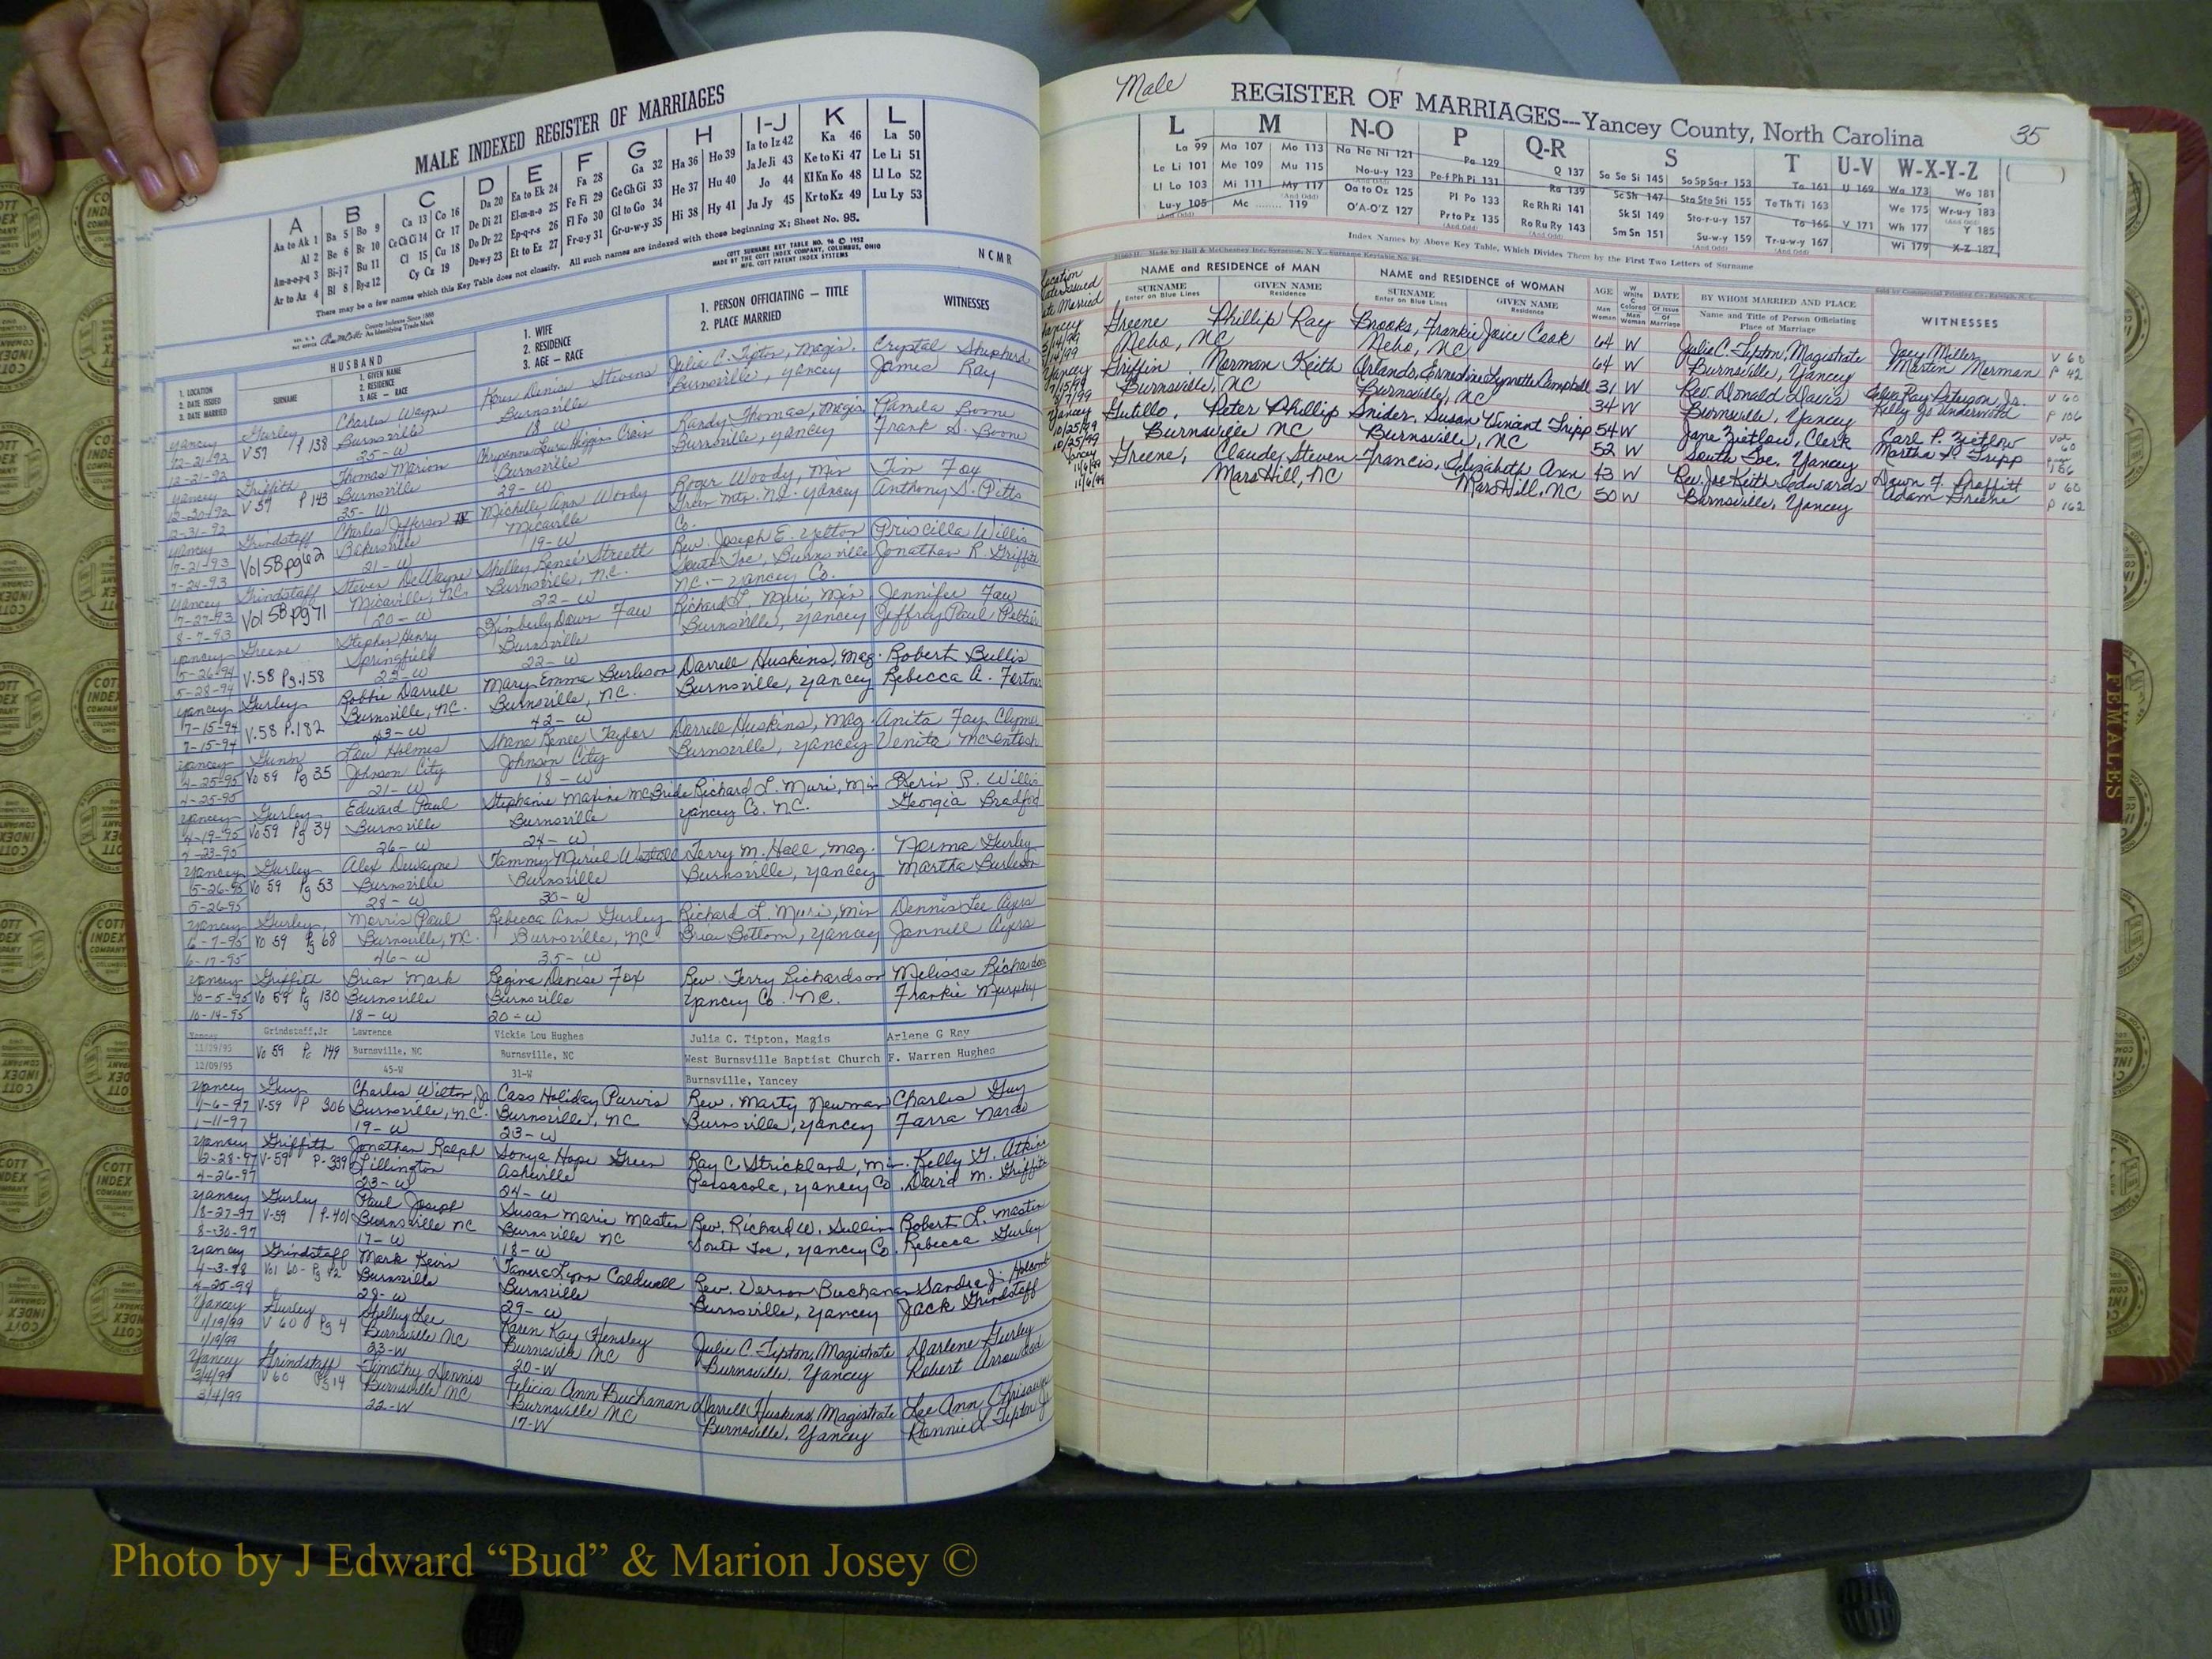 MALE INDEXED REGISTER OF MARRIAGES
A B C D E F G H I-J K L
Aa to Ak 1 Ba 5 Bo 9 Ca 13 Co 16 Da 20 Ea to Ek 24 Fa 28 Ga 32 Ha 36 Ho 39 Ia to Iz 42 Ka 46 La 50
Al 2 Be 6 Br 10 Ce Ch Ci 14 Cr 17 De Di 21 El-m-n-o 25 Fe Fi 29 Ge Gh Gi 33 He 37 Hu 40 Ja Je Ji 43 Ke to Ki 47 Le Li 51
Am-n-o-p-q 3 Bi-j 7 Bu 11 Cl 15 Cu 18 Do Dr 22 Ep-q-r-s 26 Fl Fo 30 Gl to Go 34 Hi 38 Hy 41 Jo 44 Kl Kn Ko 48 Ll Lo 52
Ar to Az 4 Bl 8 By-z 12 Cy Cz 19 De-w-y 23 Et to Ez 27 Fr-u-y 31 Gr-u-w-y 35 Ju Jy 45 Kr to Kz 49 Lu Ly 53
There may be a few names which this Key Table does not classify. All such names are indexed with those beginning X; Sheet No. 95.
COTT SURNAME KEY TABLE NO. 96 © 1952
MADE BY THE COTT INDEX COMPANY, COLUMBUS, OHIO
MFG. COTT PATENT INDEX SYSTEMS
NCMR
County Indexes Since 1888
An Identifying Trade Mark
HUSBAND
1. LOCATION
2. DATE ISSUED
3. DATE MARRIED
SURNAME
1. GIVEN NAME
2. RESIDENCE
3. AGE — RACE
1. WIFE
2. RESIDENCE
3. AGE — RACE
1. PERSON OFFICIATING — TITLE
2. PLACE MARRIED
WITNESSES
Yancey Gurley Charles Wayne Karen Denise Stevens Julia C. Tipton, Magis. Crystal Shepherd
12-21-92 V 57 P 138 Burnsville Burnsville Burnsville, Yancey James Ray
12-21-92 25-W 18 W
Yancey Griffith Thomas Marion Higgins Crain Randy Thomas, Magis. Pamela Boone
12-30-92 V 57 P 143 Burnsville Burnsville Burnsville, Yancey Frank S. Boone
12-31-92 35-W 29-W
Yancey Grindstaff Charles Jefferson IV Michelle Ann Woody Roger Woody, Min Tim Foy
7-21-93 Vol 58 pg 62 Bakersville Micaville Green Mtn. N.C. Yancey Co. Anthony S. Pitts
7-24-93 21-W 19-W
Yancey Grindstaff Steven DeWayne Shelley Renee Streett Rev. Joseph E. Yelton Priscilla Willis
7-27-93 Vol 58 pg 71 Micaville, N.C. Burnsville, N.C. South Toe, Burnsville Jonathan R. Griffith
8-7-93 20-W 22-W NC. - Yancey Co.
Yancey Greene Stephen Henry Kimberly Dawn Faw Richard L. Muri, Min Jennifer Faw
5-26-94 V.58 Pg.158 Springfield Burnsville Burnsville, Yancey Jeffrey Paul Peltier
5-28-94 22-W
Yancey Gurley Robbie Darrell Mary Emma Burleson Darrell Huskins, Mag. Robert Bullis
7-15-94 V.58 P.182 Burnsville, N.C. Burnsville, N.C. Burnsville, Yancey Rebecca A. Fortner
7-15-94 43-W 42-W
Yancey Gunn Lou Holmes Shane Renee Taylor Darrell Huskins, Mag. Anita Fay Clymer
4-25-95 Vo 59 Pg 35 Johnson City Johnson City Burnsville, Yancey Venita McEntosh
4-25-95 21-W 18-W
Yancey Gurley Edward Paul Stephanie Maxine McBride Richard L. Muri, Min R. Willis
4-19-95 Vo 59 Pg 34 Burnsville Burnsville Yancey Co. N.C. Georgia Bradford
4-23-95 26-W 24-W
Yancey Gurley Alex Dewayne Tammy Muriel Westall Terry M. Hall, Mag. Norma Gurley
5-26-95 Vo 59 Pg 53 Burnsville Burnsville Burnsville, Yancey Martha Burleson
5-26-95 28-W 30-W
Yancey Gurley Morris Paul Rebecca Ann Gurley Richard L. Muri, Min Dennis Lee Ayers
6-7-95 Vo 59 Pg 68 Burnsville, N.C. Burnsville, NC Briar Bottom, Yancey Jannell Ayers
6-17-95 46-W 35-W
Yancey Griffith Brian Mark Regina Denise Fox Rev. Terry Richardson Melissa Richardson
10-5-95 Vo 59 Pg 130 Burnsville Burnsville Yancey Co. N.C. Frankie Murphy
10-14-95 18-W 20-W
Yancey Grindstaff,Jr Lawrence Vickie Lou Hughes Julia C. Tipton, Magis Arlene G Ray
11/29/95 Vo 59 Pg 149 Burnsville, NC Burnsville, NC West Burnsville Baptist Church F. Warren Hughes
12/09/95 45-W 31-W Burnsville, Yancey
Yancey Guy Charles Wilton, Jr Cass Holiday Purvis Rev. Marty Newman Charles Guy
1-6-97 V-59 P 306 Burnsville, N.C. Burnsville, NC Burnsville, Yancey Farra Nardo
1-11-97 19-W 23-W
Yancey Griffith Jonathan Ralph Sonya Hope Green Ray C Strickland, Min. Kelly G. Atkins
2-28-97 V-59 P-339 Lillington Asheville Pensacola, Yancey Co. David M. Griffith
4-26-97 23-W 24-W
Yancey Gurley Paul Joseph Susan Marie Master Rev. Richard W. Sullins Robert L. Master
8-27-97 V-59 P-401 Burnsville NC Burnsville NC South Toe, Yancey Co. Rebecca Gurley
8-30-97 17-W 18-W
Yancey Grindstaff Mark Kevin Tamera Lynn Caldwell Rev. Vernon Buchanan Sandra J. Holcomb
4-3-98 Vol 60- Pg 42 Burnsville Burnsville Burnsville, Yancey Jack Grindstaff
4-25-98 28-W 29-W
Yancey Gurley Shelley Lee Karen Kay Hensley Julia C. Tipton, Magistrate Darlene Gurley
1/19/99 V 60 Pg 4 Burnsville NC Burnsville NC Burnsville, Yancey Robert Arrowood
1/19/99 23-W 20-W
Yancey Grindstaff Timothy Dennis Felicia Ann Buchanan Darrell Huskins, Magistrate Lee Ann Chrisawn
3/4/99 V 60 Pg 14 Burnsville NC Burnsville NC Burnsville, Yancey Ronnie L Tipton Jr
3/4/99 22-W 17-W
Male
REGISTER OF MARRIAGES---Yancey County, North Carolina
35
L M N-O P Q-R S T U-V W-X-Y-Z ( )
La 99 Ma 107 Mo 113 Na Ne Ni 121 Pa 129 Q 137 Sa Se Si 145 So Sp Sq-r 153 Ta 161 U 169 Wa 173 Wo 181
Le Li 101 Me 109 Mu 115 No-u-y 123 Pe-f Ph Pi 131 Ra 139 Sc Sh 147 Sta Ste Sti 155 Te Th Ti 163 We 175 Wr-u-y 183
Ll Lo 103 Mi 111 My 117 Oa to Oz 125 Pl Po 133 Re Rh Ri 141 Sk Sl 149 Sto-r-u-y 157 To 165 V 171 Wh 177 Y 185
Lu-y 105 Mc 119 O'A-O'Z 127 Pr to Pz 135 Ro Ru Ry 143 Sm Sn 151 Su-w-y 159 Tr-u-w-y 167 Wi 179 X-Z 187
Index Names by Above Key Table, Which Divides Them by the First Two Letters of Surname
Made by Hall & McChesney Inc. Syracuse, N. Y., Surname Keytable No. 94.
Sold by Commercial Printing Co., Raleigh, N. C.
Location
Date Issued
Date Married
NAME and RESIDENCE of MAN
SURNAME
Enter on Blue Lines
GIVEN NAME
Residence
NAME and RESIDENCE of WOMAN
SURNAME
Enter on Blue Lines
GIVEN NAME
Residence
AGE
Man
Woman
W
White
C
Colored
Man
Woman
DATE
Of Issue
Of
Marriage
BY WHOM MARRIED AND PLACE
Name and Title of Person Officiating
Place of Marriage
WITNESSES
Yancey Greene Phillip Ray Brooks, Frankie Joice Cook 64 W Julia C. Tipton, Magistrate Joey Miller V 60
5/14/99 Nebo, NC Nebo, NC 64 W Burnsville, Yancey Martin Norman P 42
Yancey Griffin Norman Keith Orlando, Ernestine Lynnette Campbell 31 W Rev. Donald Davis Ray Peterson, Jr. V 60
Burnsville, NC Burnsville, NC 34 W Burnsville, Yancey Kelly Jo Underwood P 106
Yancey Gutillo, Peter Phillip Snider, Susan Vinant Tripp 54 W Jane Zietlow, Clerk Carl P. Zietlow Vol 60
10/25/99 Burnsville NC Burnsville, NC 52 W South Toe, Yancey Martha S. Tripp
10/25/99
Yancey Greene, Claudey Steven Francis, Elizabeth Ann 43 W Rev. Joe Keith Edwards Dawn F. Proffitt V 60
11/6/99 Mars Hill, NC Mars Hill, NC 50 W Burnsville, Yancey Adam Greene P 162
FEMALES
COTT
INDEX
COMPANY
Photo by J Edward “Bud” & Marion Josey ©